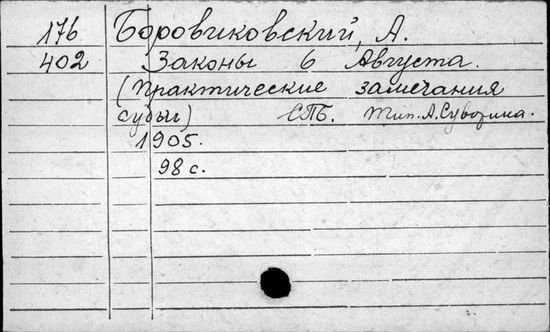 176 Боровиковский, А.
402 Законы 6 Августа.
(практические замечания
судьи) СПБ. Тип. А. Суворина.
1905.
98 с.